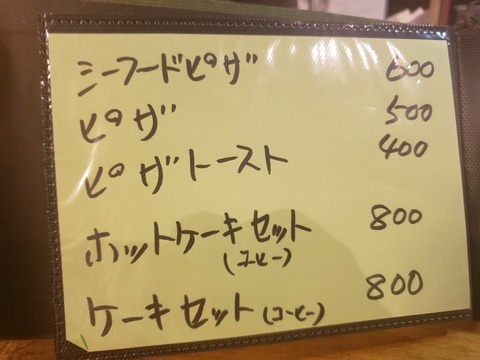 シーフードピザ 600
ピザ 500
ピザトースト 400
ホットケーキセット 800
(コーヒー)
ケーキセット(コーヒー) 800